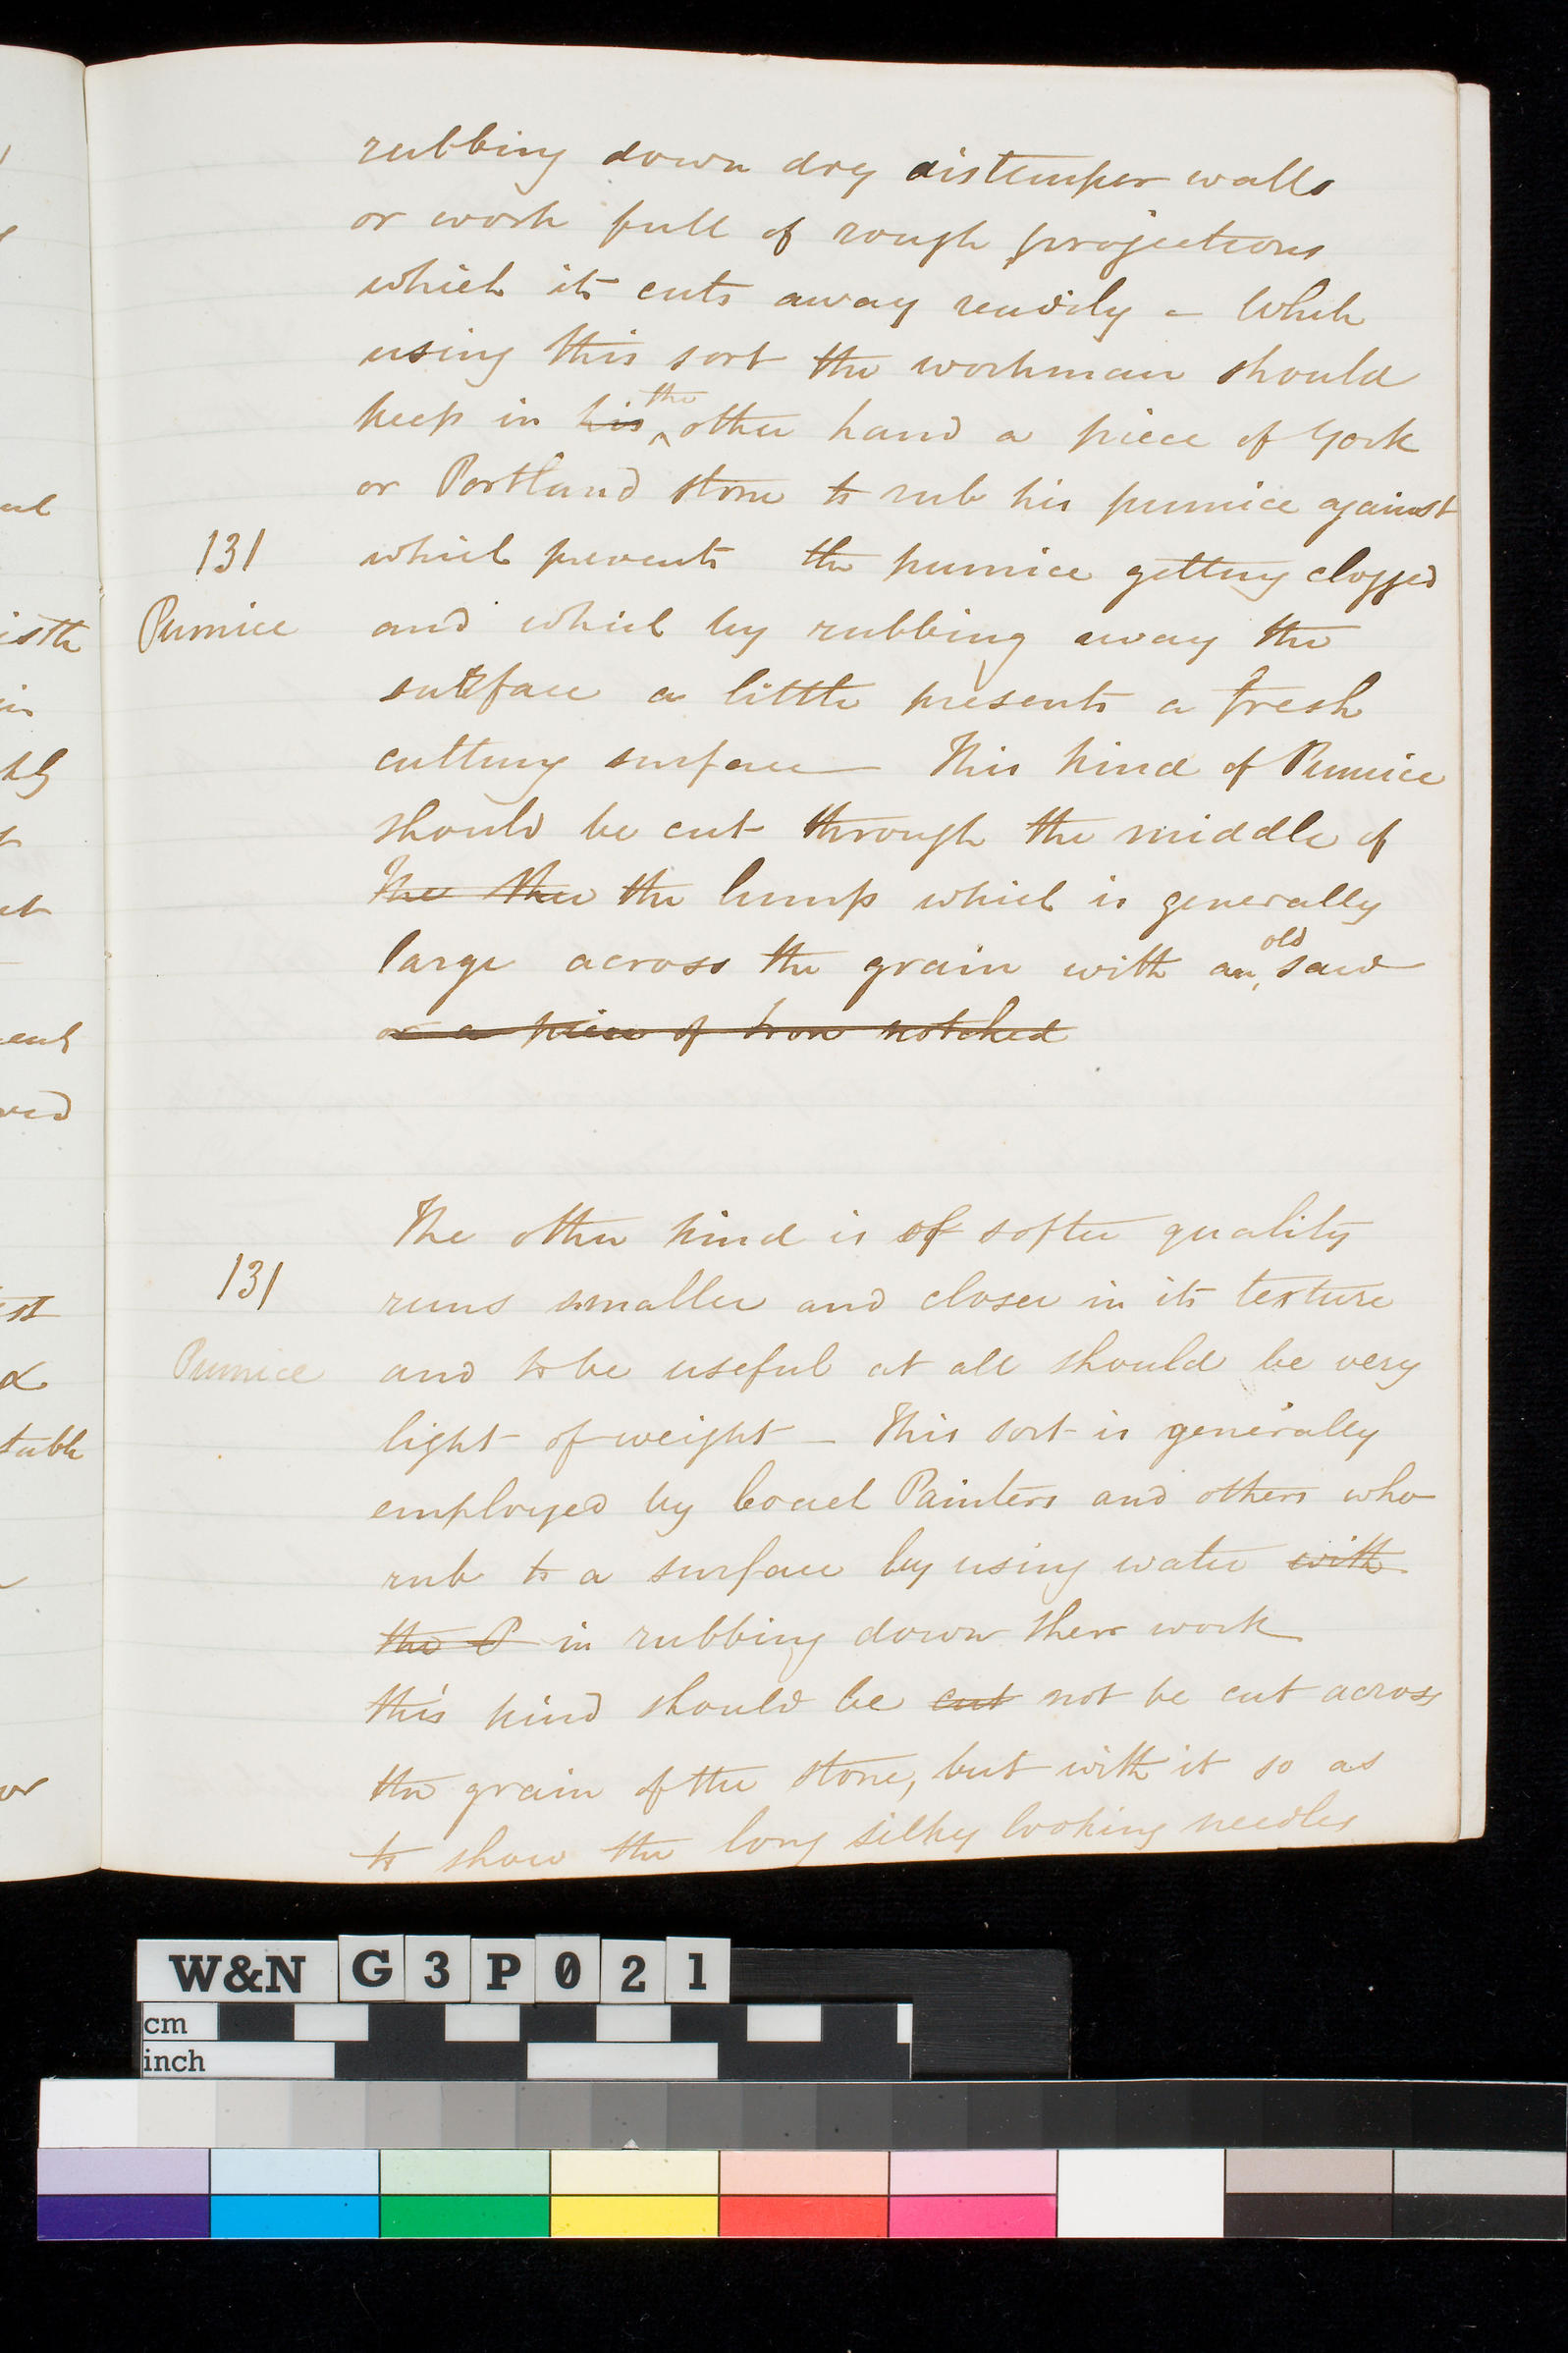 rubbing down dry distemper walls
or work full of rough projections
which it cuts away readily - While
using this sort the workman should
keep in his the other hand a piece of York
or Portland stone to rub his pumice against
131
which prevents the pumice getting clogged
Pumice
and which by rubbing away the
surface a little presents a fresh
cutting surface — This kind of Pumice
should be cut through the middle of
The Thee the lump which is generally
large across the grain with an old saw
or a piece of Iron notched
The other kind is of softer quality
131
runs smaller and closer in its texture
Pumice
and to be useful at all should be very
light of weight - This sort is generally
employed by Coach Painters and others who
rub to a surface by using water with
the P in rubbing down their work
this kind should be cut not be cut across
the grain of the stone, but with it so as
to show the long silky looking needles
W&N G3P021
cm
inch